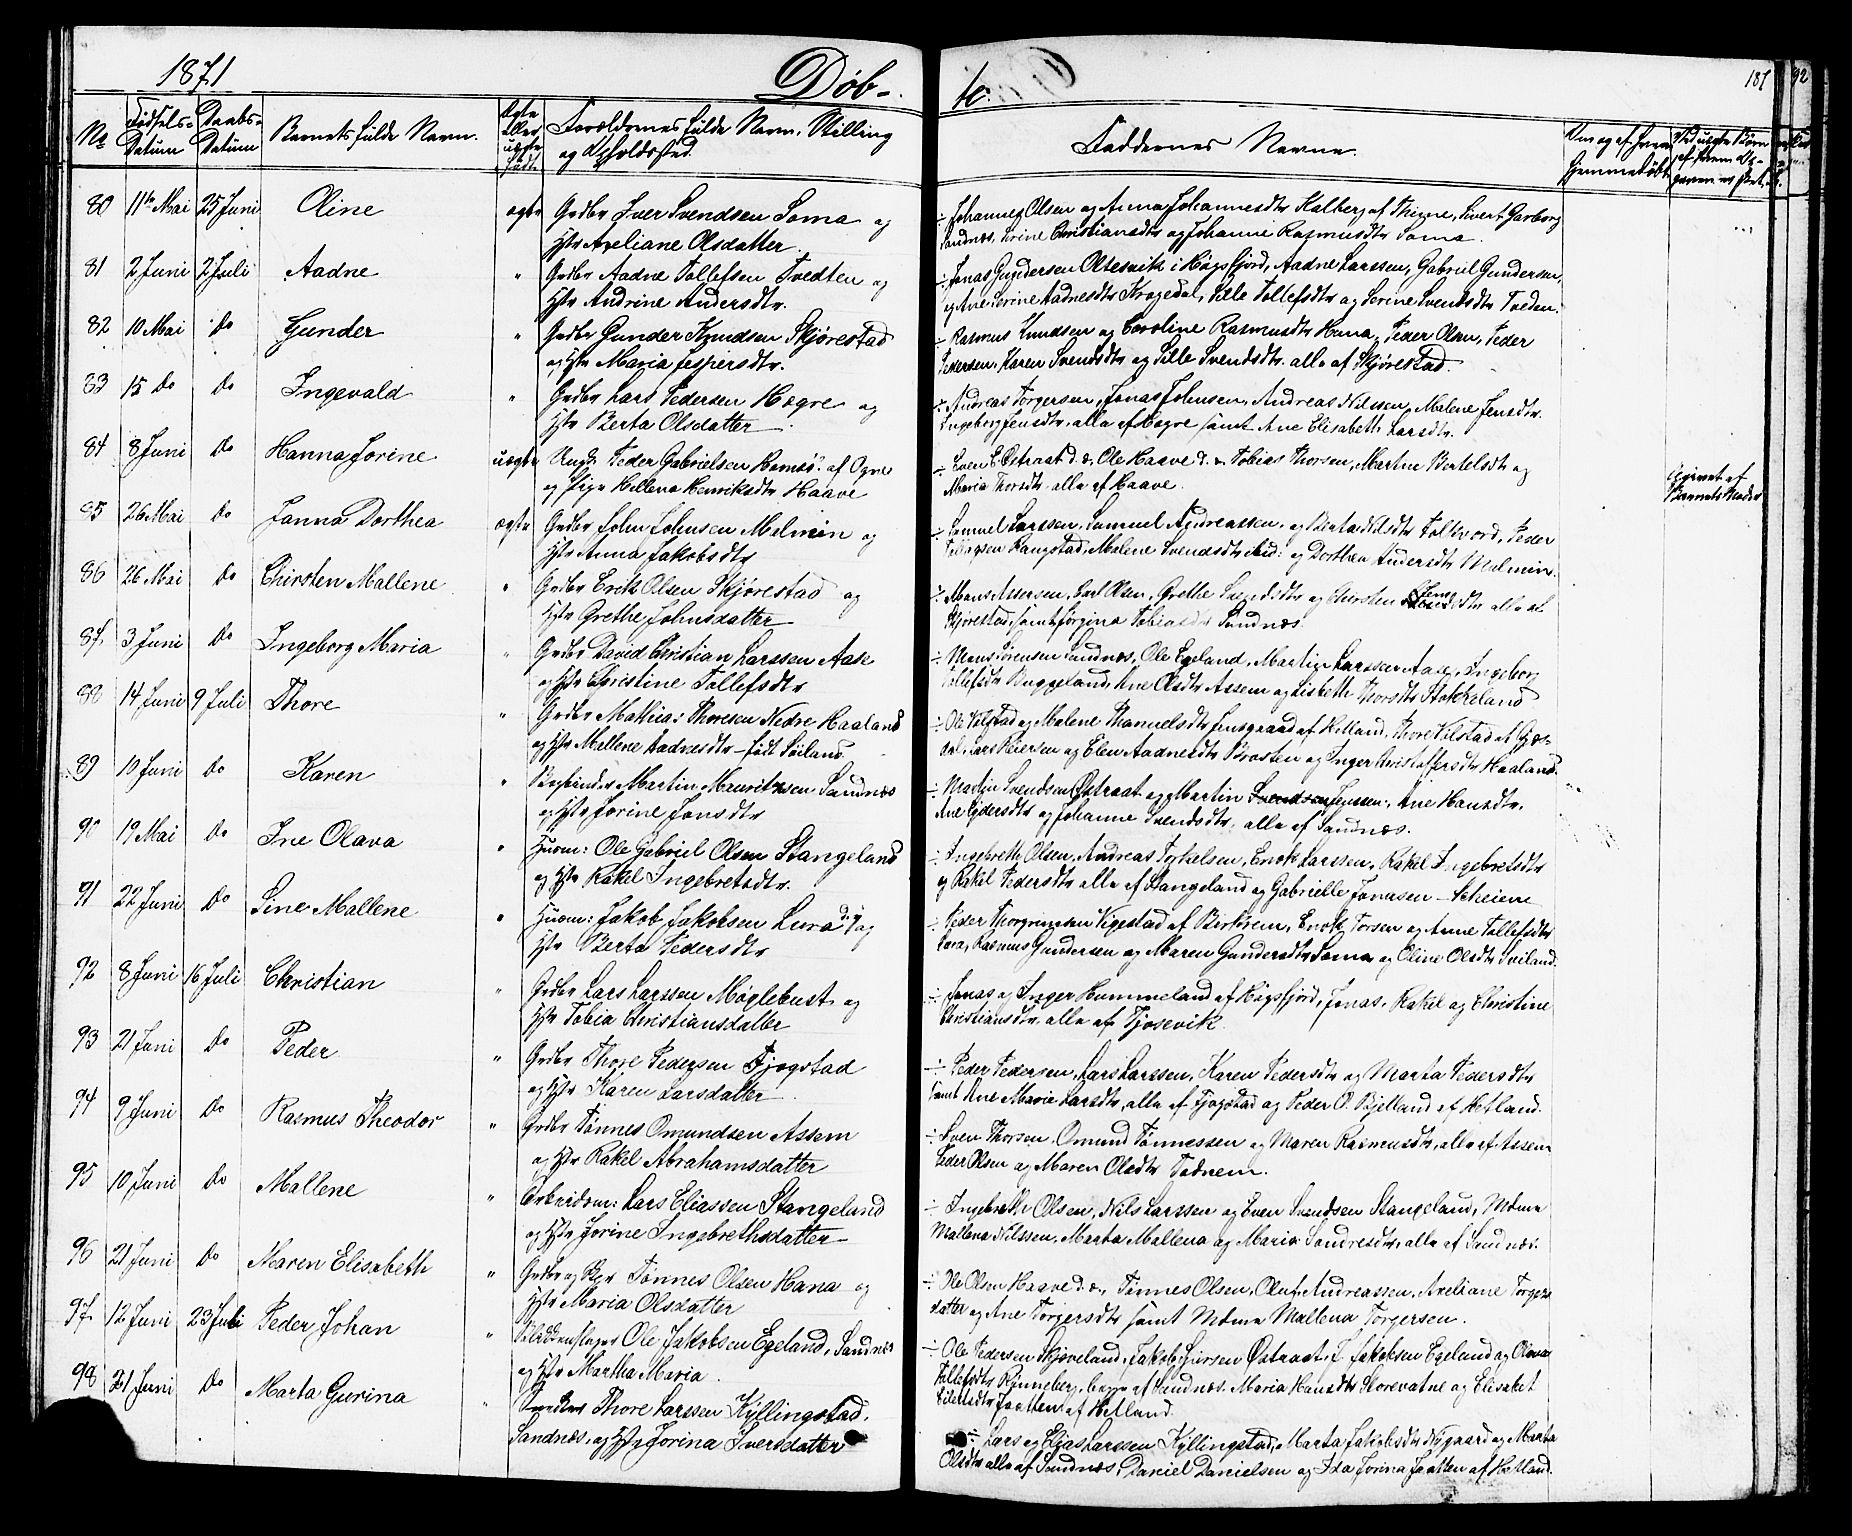 1871
Døb-
te.
187
92
No
Fødsels-Datum
Daabs-Datum
Barnets fulde Navn.
Ægte eller uægte født
Forældrenes fulde Navn, Stilling
og Opholdssted.
Faddernes Navne.
80 11te Mai 25 Juni Oline ægte Grdbr Iver Svendsen Soma og
Hstr Axeliane Olsdatter.
÷ Johannes Olsen og Anna Johannesdtr Kalberg af Thime, Sivert Garborg
Sandnæs, Serine Christiansdtr og Johanne Rasmusdtr Soma.
81 2 Juni 2 Juli Aadne " Grdbr Aadne Tollefsen Tvedten og
Hstr Andrine Andersdtr.
÷ Jonas Gundersen Oltesvik i Høgsfjord, Aadne Larssen, Gabriel Gundersen,
og Ane Serine Aadnesdtr Kragedal, Sille Tollefsdtr og Serine Svendsdtr Tveden.
82 10 Mai Do Gunder " Grdbr Gunder Knudsen Skjørestad
og Hstr Maria Jespersdtr.
÷ Rasmus Knudsen og Caroline Rasmusdtr Hana, Peder Olsen, Peder
Pedersen, Karen Svendsdtr og Sille Svendsdtr. alle af Skjørestad.
83 15 Do Do Ingevald " Grdbr Lars Pedersen Hogre og
Hstr Berta Olsdatter.
÷ Andreas Torgersen, Jonas Johnsen, Andreas Nilssen, Malene Jensdtr.
Ingeborg Jensdtr, alle af Hogre samt Ane Elisabeth Larsdtr.
84 8 Juni Do Hanna Jorine uægte Ungk. Peder Gabrielsen Ramsø af Ogne
og Pige Hellena Henriksdtr Haave
÷ Sven E Østraat d. æ. Ole Haave d. æ. Tobias Thorsen, Martne Bertelsdtr og
Maria Thorsdtr. alle af Haave.
Opgivet af
Barnets Moder
85 26 Mai Do Janna Dorthea ægte Grdbr John Johnsen Malmin og
Hstr Anna Jakobsdtr
÷ Samuel Larssen, Samuel Andreassen, og Berta Nilsdtr Folkvord, Peder
Rangstad, Malene Svendsdtr ibid: og Dorthea Andersdtr Malmin.
86 26 Mai Do Chirsten Mallene " Grdbr Erik Olsen Skjørestad og
Hstr Grethe Johnsdatter
÷ Mons Assersen, Carl Olsen, Grethe Svendsdtr og Chirsten dtr alle af
Skjørestad, samt Jørgina Tobiasdtr Sandnæs.
87 3 Juni Do Ingeborg Maria " Grdbr David Christian Larssen Aase
og Hstr Christine Tollefsdtr
÷ Mons Sørensen Sandnæs, Ole Egeland, Martin Larssen Aase, Ingeborg
Tollefsdtr Buggeland, Ane Olsdtr Assem og Lisbeth Thorsdtr Stokkeland
88 14 Juni 9 Juli Thore " Grdbr Mathias Thoresen Nedre Haaland
og Hstr Mallene Aadnesdtr - født Soiland
÷ Ole Vølstad og Malene Thamuelsdtr Jensgaard af Hetland, Thore Vilstad af Gjes-
dal, Lars Peiersen og Elen Aadnesdtr Braaten og Inger Christoffersdtr Haaland.
89 10 Juni Do Karen " Bogbinder Martin Mauritssen Sandnæs
og Hstr Jorine Jonsdtr
÷ Martin Svendsen Østraat og Martin Svendsen Jenssen, Ane Hansdtr,
Ane Eydersdtr og Johanne Svendsdtr, alle af Sandnæs.
90 19 Mai Do Ine Olava " Huusm: Ole Gabriel Olsen Stangeland
og Hstr Rakel Ingebretsdtr.
÷ Ingebreth Olsen, Andreas Torkelsen, Enok Larssen, Rakel Ingebretsdtr
og Rakel Pedersdtr alle af Stangeland og Gabrielle Jonasen Scheiene
91 22 Juni Do Sine Mallene " Huusm: Jakob Jakobsen Lura d. y. og
Hstr Berta Pedersdtr
÷ Peder Thorgrimsen Vigestad af Birkrem, Enok Torsen og Anne Tollefsdtr
Lura, Rasmus Gundersen og Maren Gundersdtr Soma og Oline Olsdtr Sviland.
92 8 Juni 16 Juli Christian " Grdbr Lars Larssen Møglebust og
Hstr Tobia Christiansdatter
÷ Jonas og Inger Hummeland af Høgsfjord, Jonas, Rakel og Christine
Christiansdtr, alle af Tjosevik.
93 21 Juni Do Peder " Grdbr Thore Pedersen Fjogstad
og Hstr Karen Larsdatter.
÷ Peder Pedersen, Lars Larssen, Karen Pedersdtr og Marta Pedersdtr
samt Ane Marie Larsdtr, alle af Fjogstad og Peder O. Bjelland af Hetland.
94 9 Juni Do Rasmus Theodor " Grdbr Tønnes Omundsen Assem
og Hstr Rakel Abrahamsdatter
÷ Sven Thorsen, Omund Tønnessen og Maren Rasmusdtr, alle af Assem
Peder Olsen og Maren Olsdtr Tadnem.
95 10 Juni Do Mallene " Arbeidsm: Lars Eliassen Stangeland
og Hstr Jorine Ingebrethsdatter
÷ Ingebreth Olsen, Nils Larssen og Sven Svendsen Stangeland, Mdme
Mallena Nilssen, Marta Mallena og Maria Sandresdtr, alle af Sandnæs.
96 21 Juni Do Maren Elisabeth " Grdbr og Tønnes Olsen Hana og
Hstr Maria Olsdatter
÷ Ole Olsen Haave d. æ., Tønnes Olsen, Oluf Andreassen, Axeliane Torgers
datter og Ane Torgersdtr samt Mdme Mallena Torgersen.
97 12 Juni 23 Juli Peder Johan " Blikkenslager Ole Jakobsen Egeland, Sandnæs
og Hstr Martha Maria.
÷ Ole Pedersen Skjæveland, Jakob Iversen Østraat, J. Jakobsen Egeland og Olena
Tollefsdtr Rønneberg, begge af Sandnæs. Maria Hansdtr Storevatne og Elisabet
Eilertsdtr Jaatten af Hetland.
98 21 Juni Do Marta Gurina " Snedker Thore Larssen Kyllingstad,
Sandnæs, og Hstr Jorina Iversdatter
÷ Lars og Elias Larssen Kyllingstad, Marta Jakobsdtr Nygaard og Marta
Olsdtr alle af Sandnæs, Daniel Danielsen og Ida Jorina Jaatten af Hetland.